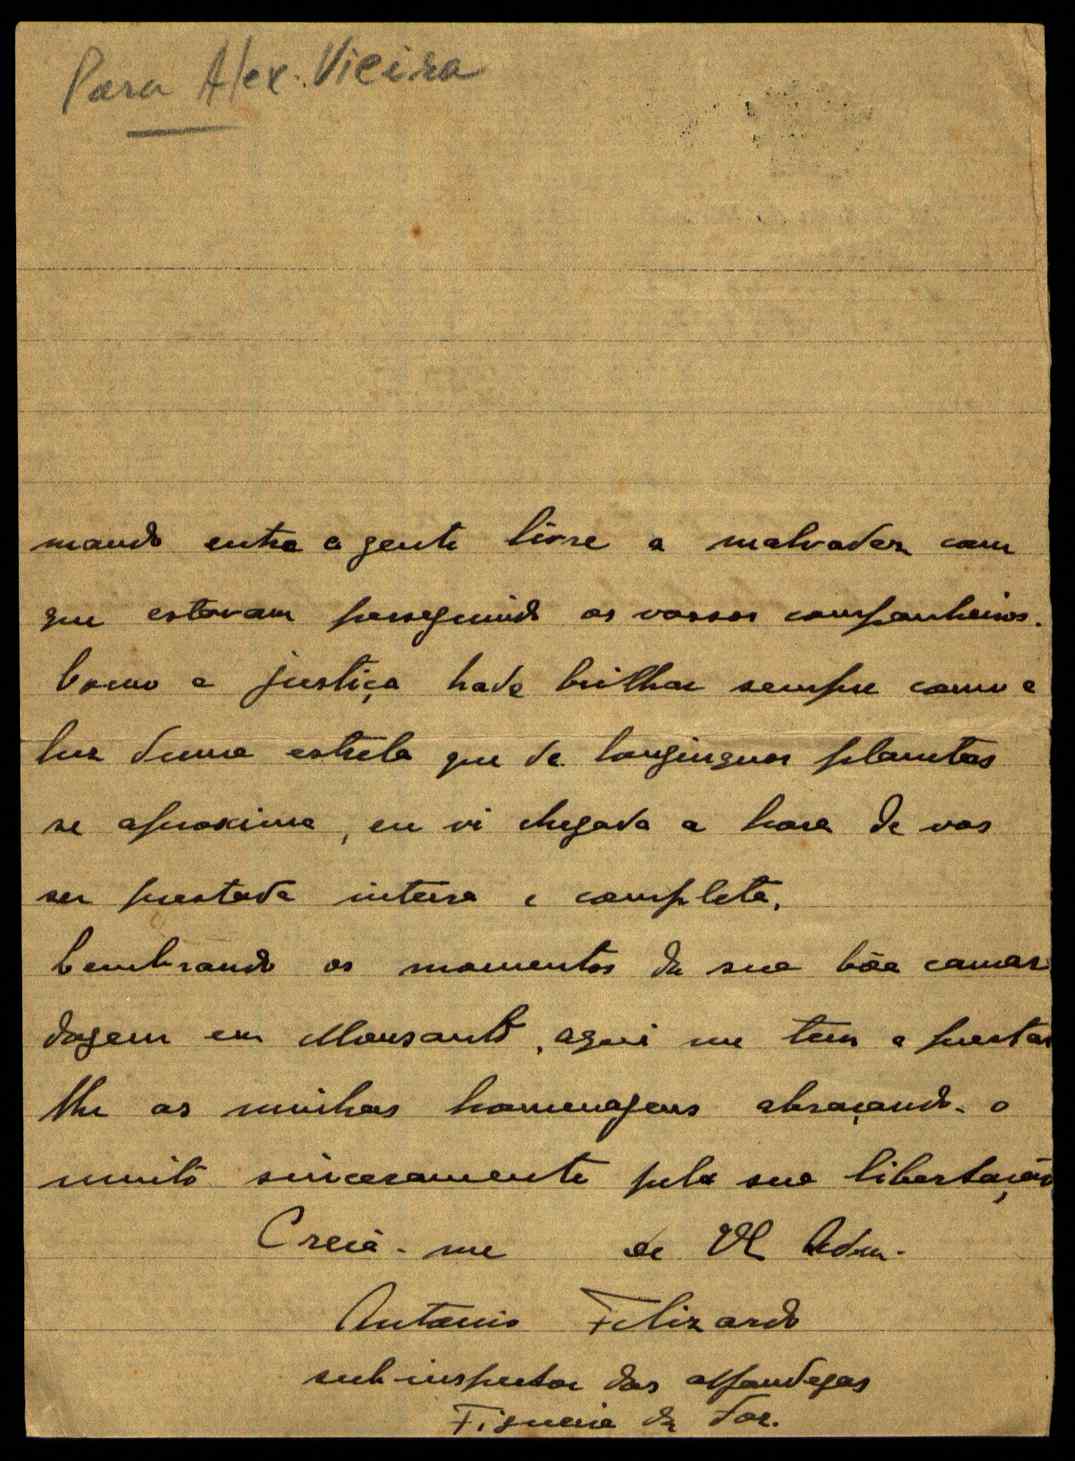 Para Alex. Vieira
mando entre a gente livre a malvadez com
que estavam perseguindo os vossos companheiros.
Como a justiça hade brilhar sempre como a
luz duma estrela que de longinquos planetas
se aproxima, eu vi chegada a hora de vos
ser prestada inteira e completa.
Lembrando os momentos da sua bôa camara
dagem em Monsanto, aqui me tem a prestar
lhe as minhas homenagens abraçando-o
muito sinceramente pela sua libertação
Creia-me de V.
Antonio Felizardo
sub-inspector das alfandegas
Figueira da Foz.